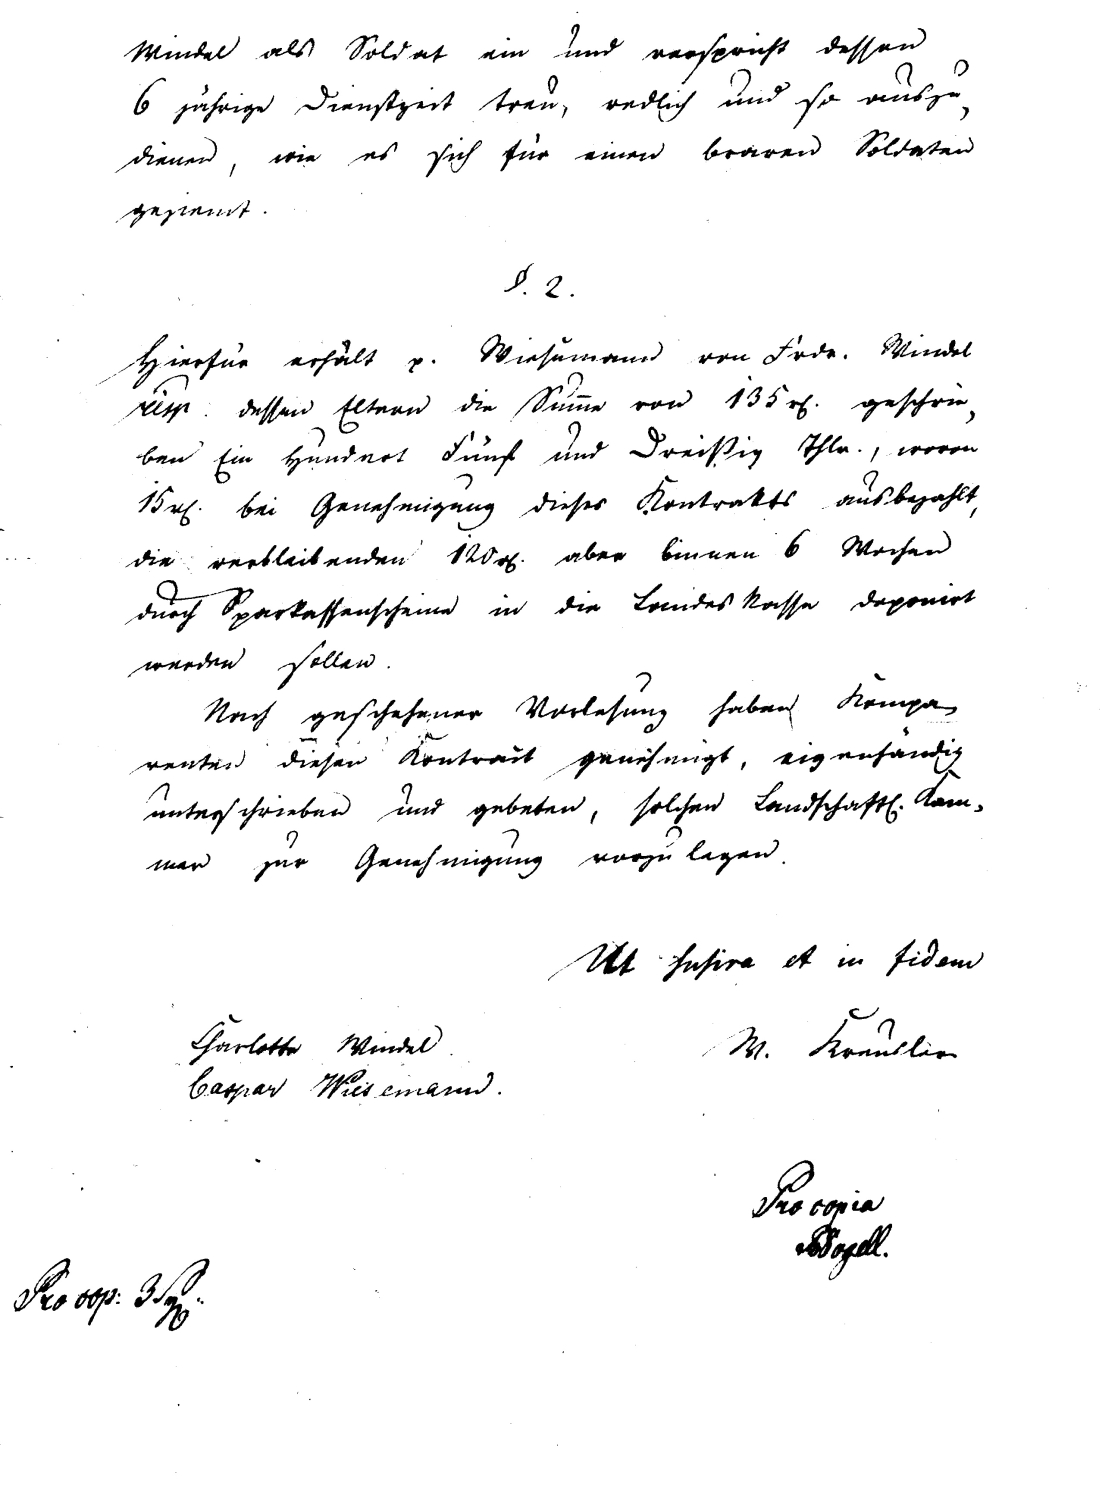 Windel als Soldat ein und verspricht dessen
6 jährige Dienstzeit treu, redlich und so auszu„
dienen, wie es sich für einen braven Soldaten
geziemt.
§. 2.
Hierfür erhält p. Wiesemann von Frdr. Windel
resp. dessen Eltern die Sum̅e von 135 rℓ. geschrie„
ben Ein Hundert Fünf und Dreißig Thlr., wovon
15 rℓ. bei Genehmigung dieses Kontrakts ausbezahlt,
die verbleibenden 120 rℓ. aber binnen 6 Wochen
durch Sparkassenscheine in die Landeskasse deponirt
werden sollen.
Nach geschehener Vorlesung haben Kompa„
renten diesen Kontrakt genehmigt, eigenhändig
unterschrieben und gebeten, solchen Landschaftl. Kam„
mer zur Genehmigung vorzulegen.
Ut supra et in fidem
Charlotte Windel
W. Kreusler
Caspar Wiesemann.
Pro copia
Vogell.
Pro cop: 3 Sgr.